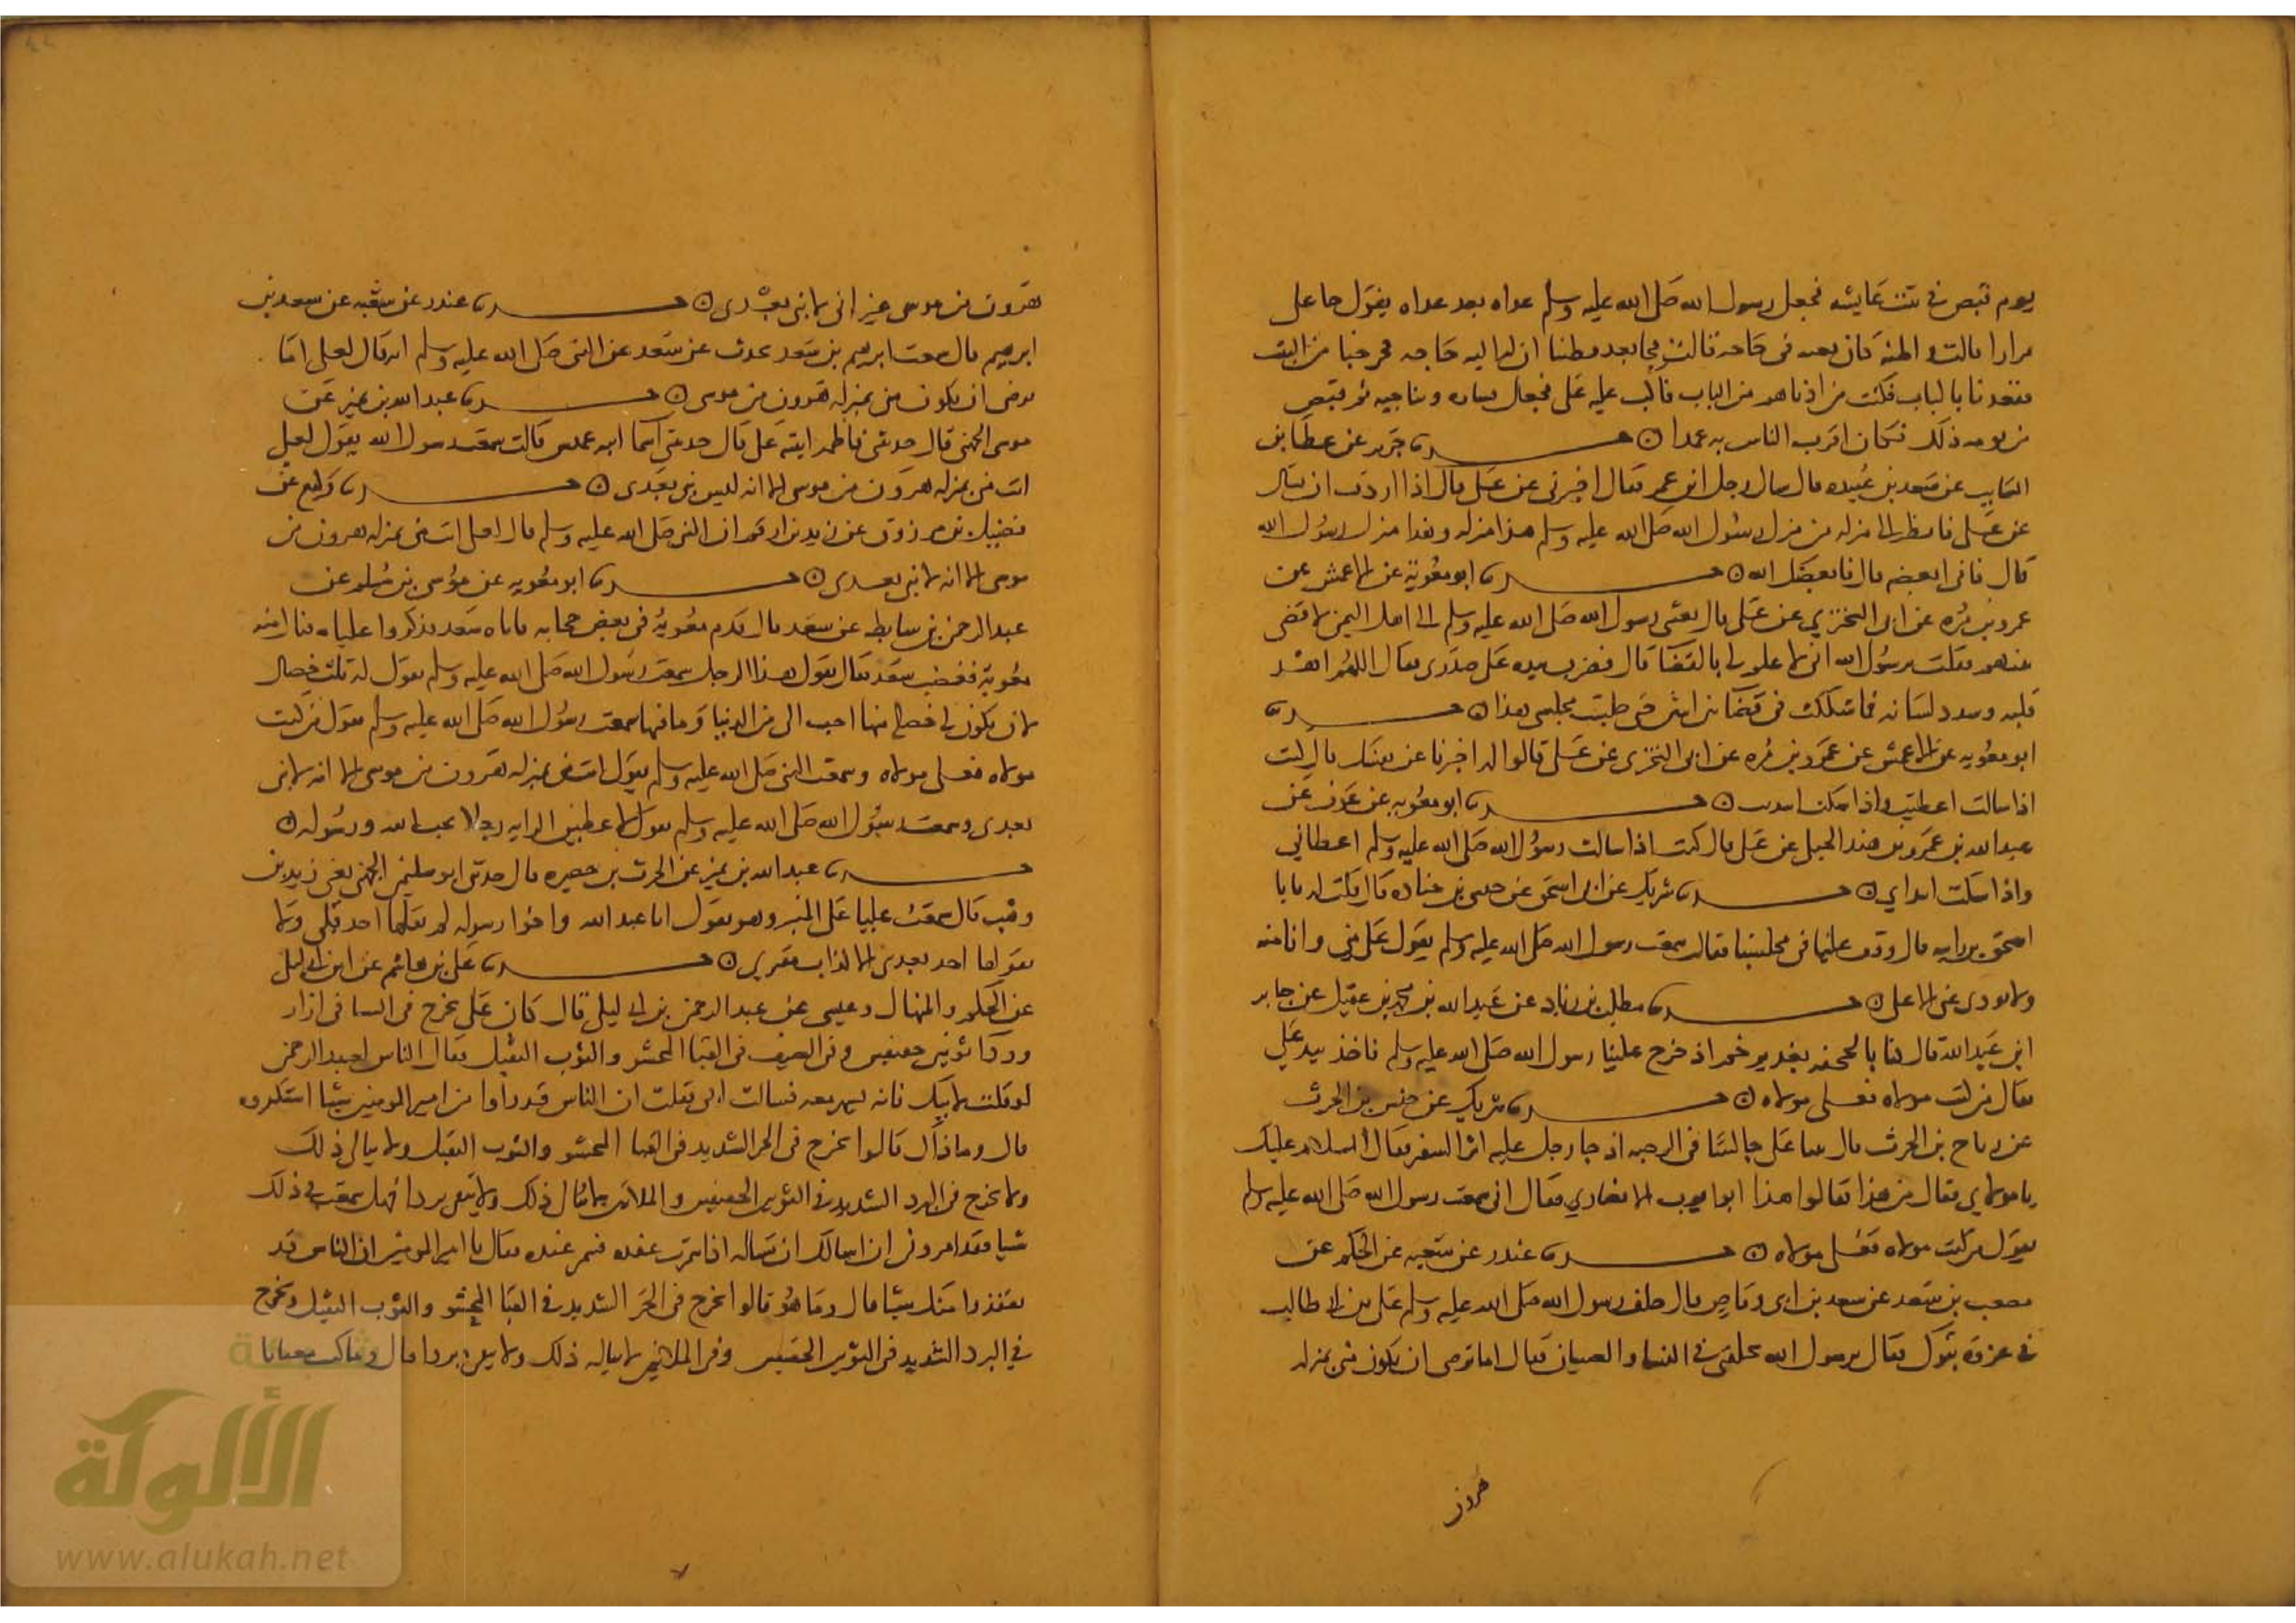 يوم قبض في بيت عايشه فجعل رسول الله صلى الله عليه وسلم غداه بعد غداه يقول جا على
مرارا قالت واظنه كان بعثه في حاجه قالت فجا بعد فظننا ان له اليه حاجه فخرجنا من البيت
فقعدنا بالباب فكنت من ادناهم من الباب فاكب عليه على فجعل يساره ويناجيه ثم قبض
من يومه ذلك فكان اقرب الناس به عهدا ۞ حدثنا جرير عن عطا بن
السايب عن سعد بن عبيده قال سال رجل ابن عمر فقال اخبرني عن على قال اذا اردت ان تسال
عن على فانظر الى منزله من منزل رسول الله صلى الله عليه وسلم هذا منزله وهذا منزل رسول الله
قال فاني ابغضه قال فابغضك الله ۞ حدثنا ابو معوية عن الاعمش عن
عمرو بن مره عن ابى البختري عن على قال بعثنى رسول الله صلى الله عليه وسلم الى اهل اليمن لاقضى
بينهم فقلت يرسول الله انى لا علم لى بالقضا قال فضرب بيده على صدرى فقال اللهم اهد
قلبه وسدد لسانه فما شككت فى قضا بين اثنين حتى جلست مجلسى هذا ۞ حدثنا
ابو معويه عن الاعمش عن عمرو بن مره عن ابى البخترى عن على قالوا له اخبرنا عن نفسك قال كنت
اذا سالت اعطيت واذا سكت ابتديت ۞ حدثنا ابو معويه عن عوف عن
عبد الله بن عمرو بن هند الجملى عن على قال كنت اذا سالت رسول الله صلى الله عليه وسلم اعطاني
واذا سكت ابتداني ۞ حدثنا شريك عن ابى اسحق عن حبشى بن جناده قال قلت له يابا
اسحق اين رايته قال وقف علينا فى مجلسنا فقال سمعت رسول الله صلى الله عليه وسلم يقول على مني وانا منه
ولا يودى عنى الا على ۞ حدثنا مطلب بن زياد عن عبد الله بن محمد بن عقيل عن جابر
ابن عبد الله قال كنا بالجحفه بغدير خم اذ خرج علينا رسول الله صلى الله عليه وسلم فاخذ بيد علي
فقال من كنت مولاه فعلى مولاه ۞ حدثنا شريك عن حنش بن الحرث
عن رياح بن الحرث قال بينا على جالسا فى الرحبه اذ جا رجل عليه اثر السفر فقال السلام عليك
يا مولاي فقال من هذا فقالوا هذا ابو ايوب الانصاري فقال انى سمعت رسول الله صلى الله عليه وسلم
يقول من كنت مولاه فعلى مولاه ۞ حدثنا غندر عن شعبه عن الحكم عن
مصعب بن سعد عن سعد بن ابى وقاص قال خلف رسول الله صلى الله عليه وسلم على بن ابى طالب
في غزوه تبوك فقال يرسول الله تخلفنى في النسا والصبيان فقال اما ترضى ان تكون منى بمنزله
هرون
هرون من موسى غير انى لا نبى بعدى ۞ حدثنا غندر عن شعبه عن سعد بن
ابرهيم قال سمعت ابرهيم بن سعد يحدث عن سعد عن النبى صلى الله عليه وسلم انه قال لعلى اما
ترضى ان تكون منى بمنزله هرون من موسى ۞ حدثنا عبد الله بن نمير عن
موسى الجهنى قال حدثنى فاطمه ابنه على قال حدثتنى اسما ابنه عميس قالت سمعت رسول الله يقول لعلى
انت منى بمنزله هرون من موسى الا انه ليس نبى بعدى ۞ حدثنا وكيع عن
فضيل بن مرزوق عن زيد بن ارقم ان النبى صلى الله عليه وسلم قال لعلى انت منى بمنزله هرون من
موسى الا انه لا نبى بعدى ۞ حدثنا ابو معويه عن موسى بن مسلم عن
عبد الرحمن بن سابط عن سعد قال قدم معوية فى بعض حجاته فاتاه سعد فذكروا عليا فنال منه
معوية فغضب سعد فقال تقول هذا الرجل سمعت رسول الله صلى الله عليه وسلم يقول له ثلث خصال
لان تكون لى خصله منها احب الى من الدنيا وما فيها سمعت رسول الله صلى الله عليه وسلم يقول من كنت
مولاه فعلى مولاه وسمعت النبى صلى الله عليه وسلم يقول انت منى بمنزله هرون من موسى الا انه لا نبى
بعدى وسمعت رسول الله صلى الله عليه وسلم يقول لاعطين الرايه رجلا يحب الله ورسوله ۞
حدثنا عبد الله بن نمير عن الحرث بن حصيره قال حدثنى ابو سليمن الجهنى يعنى زيد بن
وهب قال سمعت عليا على المنبر وهو يقول انا عبد الله واخوا رسوله لم يقلها احد قبلى ولا
يقولها احد بعدى الا كذاب مفترى ۞ حدثنا على بن هاشم عن ابن ابى ليلى
عن الحكم والمنهال وعيسى عن عبد الرحمن بن ابى ليلى قال كان على يخرج فى الشتا فى ازار
وردا ثوبين خفيفين وفى الصيف فى القبا المحشو والثوب الثقيل فقال الناس لعبد الرحمن
لو قلت لابيك فانه يسهر معه فسالت ابى فقلت ان الناس قد راوا من امير المومنين شيا استنكروه
قال وما ذاك قالوا يخرج فى الحر الشديد فى القبا المحشو والثوب الثقيل ولا يبالى ذلك
ولا يخرج فى البرد الشديد فى الثوبين الخفيفين والملاتين لا يبالى ذلك ولا يتقى بردا فهل سمعت فى ذلك
شيا فقد امرونى ان اسالك ان تساله اذا سمرت عنده فسمر عنده فقال يا امير المومنين ان الناس قد
تفقدوا منك شيا قال وما هو قالوا تخرج فى الحر الشديد فى القبا المحشو والثوب الثقيل وتخرج
في البرد الشديد فى الثوبين الخفيفين وفى الملاتين لا تبالى ذلك ولا تتقى بردا قال وما كنت معنا يا
الألوكة
www.alukah.net